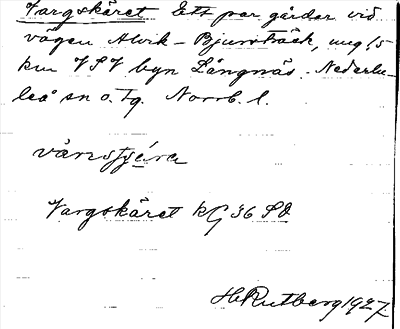 Vargskäret Ett par gårdar vid
vägen Alvik – Bjursträsk, ung 1,5
km VSV byn Långnäs. Nederlu-
leå sn o. tg. Norrb. l.
Vargskäret kG 36 SO
H. Rutberg 1927.